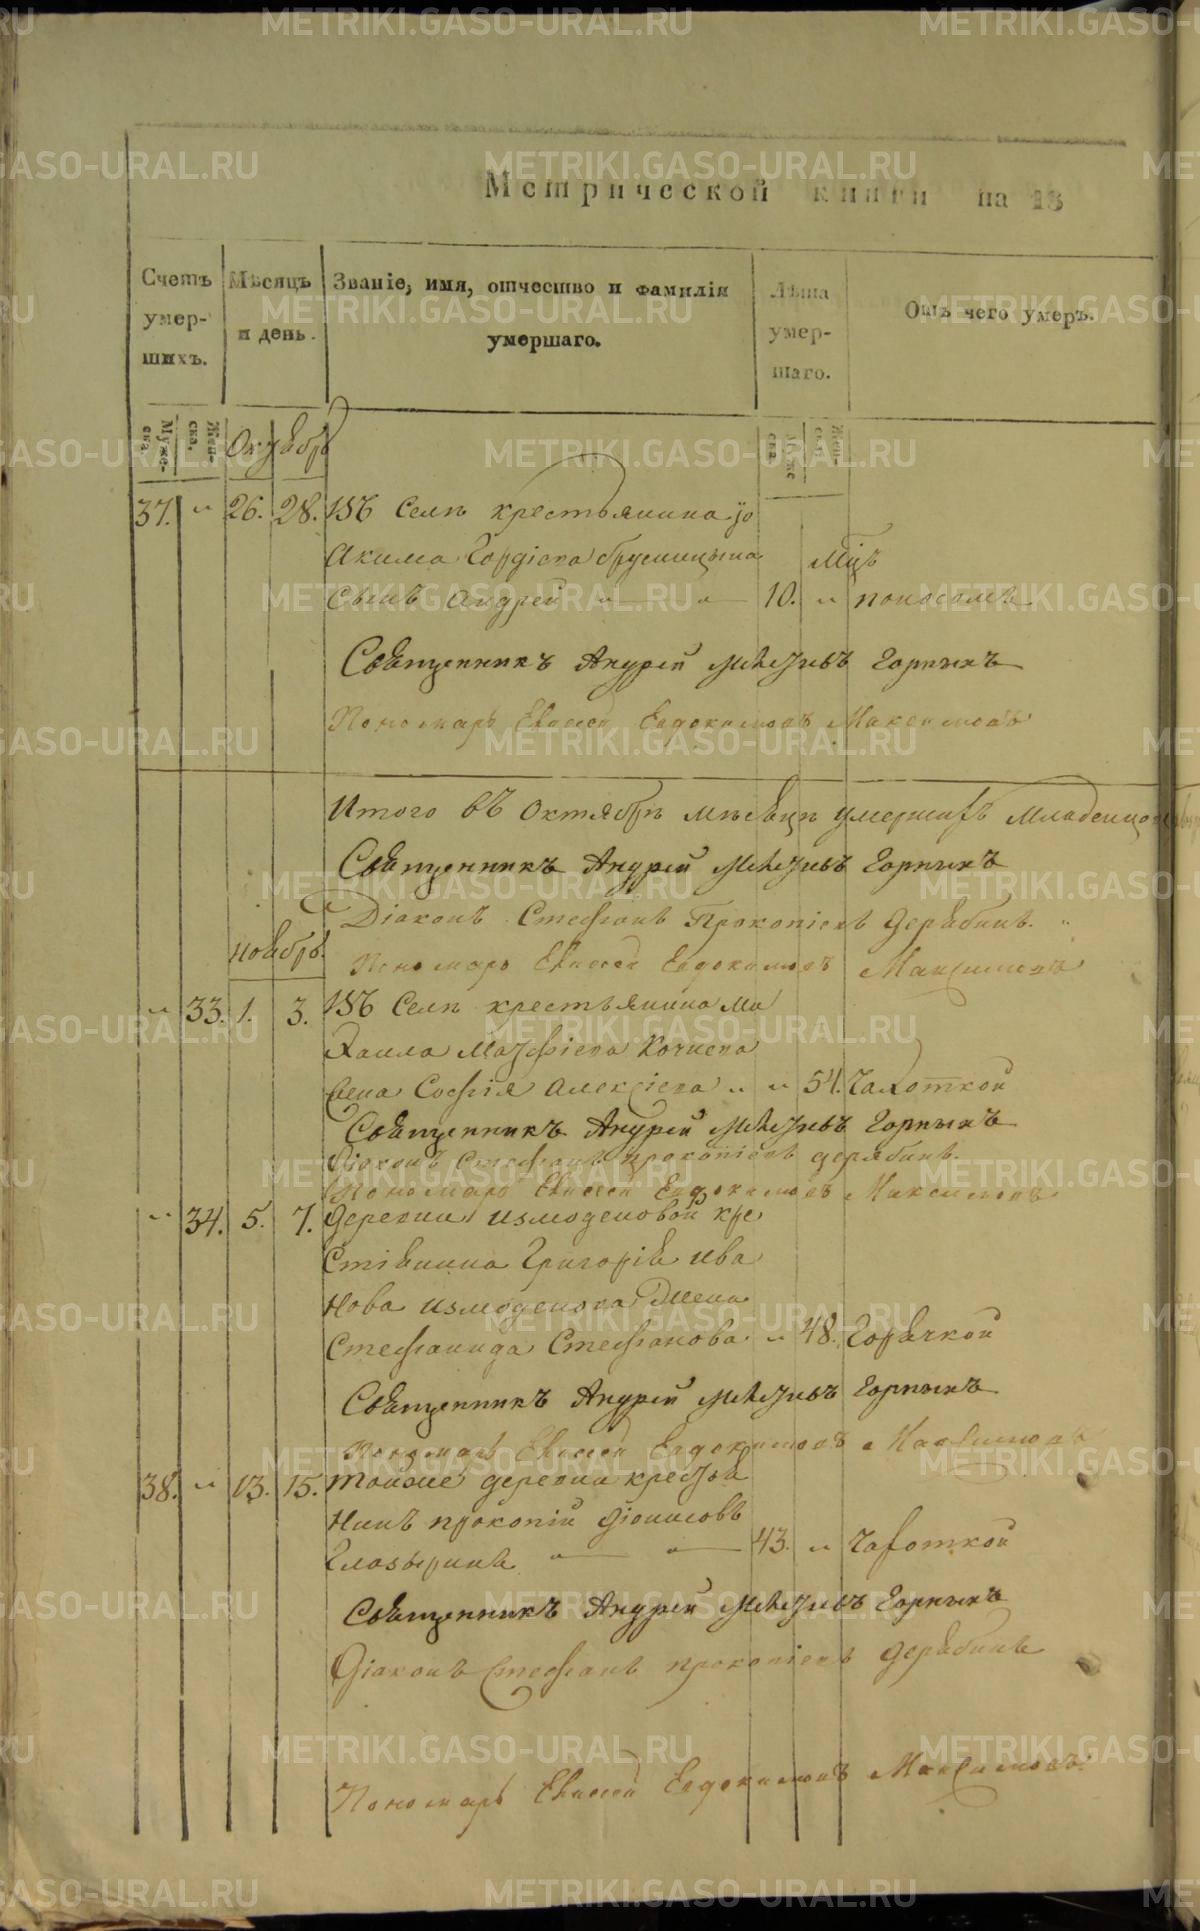 Метрической книги на 18
Счетъ умер-шихъ.
Мѣсяцъ и день.
Званіе, имя, отчество и фамилія умершаго.
Лѣта умер-шаго.
Отъ чего умеръ.
Муже-ска.
Жен-ска.
Муже ска.
Жен-ска.
Октябрь
37. " 26. 28. Въ Селѣ крестьянина Іо
Акима Гордіева Брусницына Мцъ
Сынъ Андрей " " 10. " поносомъ
Священникъ Андрей Горныхъ
Пономарь Евсей Евдокимовъ Максимовъ
Итого въ Октябрѣ мѣсяцѣ умершихъ Младенцовъ
Священникъ Андрей Горныхъ
Діаконъ Стефанъ Прокопіевъ Дерябинъ.
Ноябрь.
Пономарь Евсей Евдокимовъ Максимовъ
" 33. 1. 3. Въ Селѣ крестьянина Ми
Хаила Матфіева Кочнева
Жена Софія Алексіева " " 54. Чахоткой
Священникъ Андрей Горныхъ
Діаконъ Стефанъ Прокопіевъ Дерябинъ.
Пономарь Евсей Евдокимовъ Максимовъ
" 34. 5. 7. Деревни Измоденовой кре
Стіянина Григорія Ива
Нова Измоденова Жена
Стефанида Стефанова " 48. Горячкой
Священникъ Андрей Горныхъ
Пономарь Евсей Евдокимовъ Максимовъ
38. " 13. 15. Тойже деревни крестья
Нинъ Прокопій Діонисовъ
Глазыринъ " " 43. " Чахоткой
Священникъ Андрей Горныхъ
Діаконъ Стефанъ Прокопіевъ Дерябинъ
Пономарь Евсей Евдокимовъ Максимовъ.
METRIKI.GASO-URAL.RU